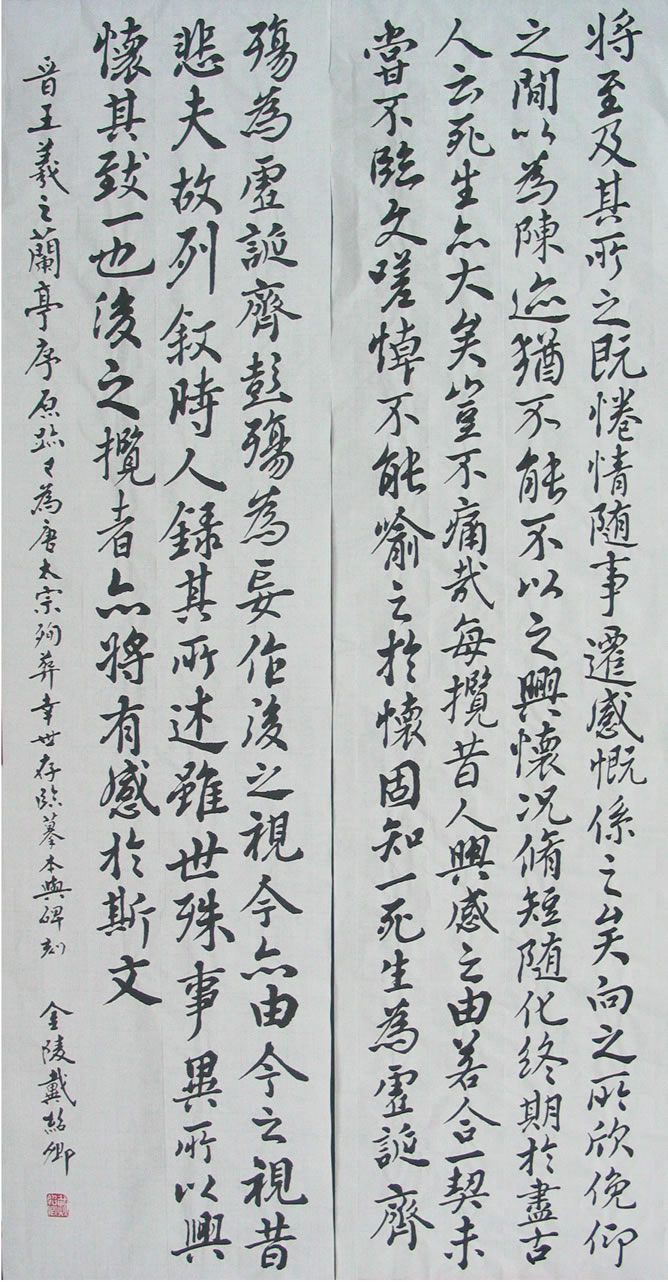 将至及其所之既惓情随事遷感慨係之矣向之所欣俛仰
之間以為陳迹猶不能不以之興懷况脩短随化終期於盡古
人云死生亦大矣豈不痛哉每攬昔人興感之由若合一契未
嘗不臨文嗟悼不能喻之於懷固知一死生為虛誕齊
殤為虛誕齊彭殤為妄作後之視今亦由今之視昔
悲夫故列叙時人録其所述雖世殊事異所以興
懷其致一也後之攬者亦将有感於斯文
晋王羲之蘭亭序原跡已為唐太宗殉葬幸世存臨摹本與碑刻 金陵戴紹卿